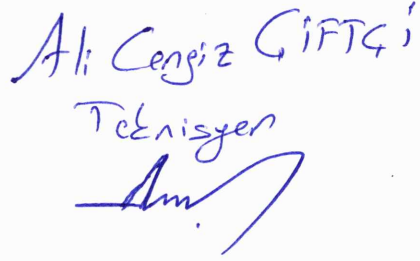 Ali Cengiz ÇİFTÇİ
Teknisyen